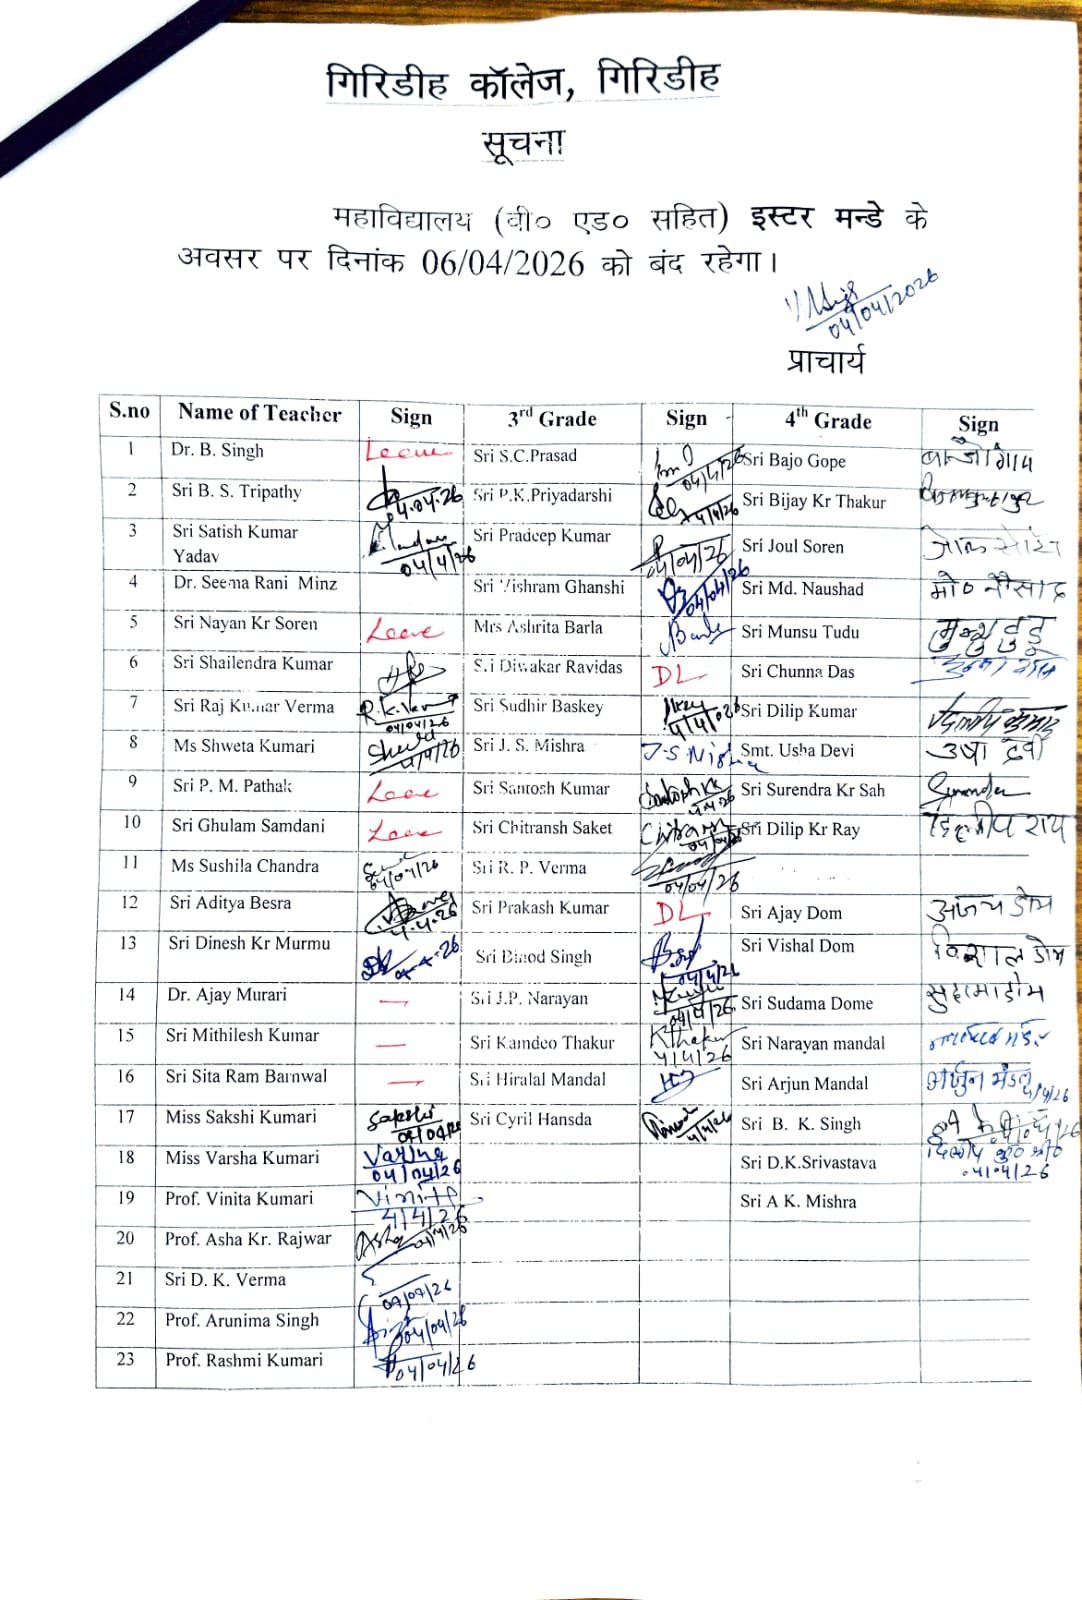 गिरिडीह कॉलेज, गिरिडीह
सूचना
महाविद्यालय (बी० एड० सहित) इस्टर मन्डे के
अवसर पर दिनांक 06/04/2026 को बंद रहेगा।
04/04/2026
प्राचार्य
S.no Name of Teacher Sign 3rd Grade Sign 4th Grade Sign
1 Dr. B. Singh Leave Sri S.C.Prasad 04/4/26 Sri Bajo Gope
2 Sri B. S. Tripathy 04.04.26 Sri P.K.Priyadarshi 4/4/26 Sri Bijay Kr Thakur
3 Sri Satish Kumar Yadav 04/4/26 Sri Pradeep Kumar 04/04/26 Sri Joul Soren
4 Dr. Seema Rani Minz Sri Vishram Ghanshi 04/04/26 Sri Md. Naushad मो० नौसाद
5 Sri Nayan Kr Soren Leave Mrs Ashrita Barla Sri Munsu Tudu मुन्शु टुडु
6 Sri Shailendra Kumar Sri Diwakar Ravidas DL Sri Chunna Das
7 Sri Raj Kumar Verma R.k.Verma 04/04/26 Sri Sudhir Baskey 4/4/026 Sri Dilip Kumar
8 Ms Shweta Kumari 4/4/26 Sri J. S. Mishra J.S. Mishra Smt. Usha Devi उषा देवी
9 Sri P. M. Pathak Leave Sri Santosh Kumar Santosh Kr 4/4/26 Sri Surendra Kr Sah Surendra
10 Sri Ghulam Samdani Leave Sri Chitransh Saket 04/04/26 Sri Dilip Kr Ray दिलीप राय
11 Ms Sushila Chandra 04/04/26 Sri R. P. Verma 04/04/26
12 Sri Aditya Besra 4.4.26 Sri Prakash Kumar DL Sri Ajay Dom अजय डोम
13 Sri Dinesh Kr Murmu 04.4.26 Sri Binod Singh 04/4/26 Sri Vishal Dom विशाल डोम
14 Dr. Ajay Murari — Sri J.P. Narayan 04/4/26 Sri Sudama Dome सुदामा डोम
15 Sri Mithilesh Kumar — Sri Kamdeo Thakur KThakur 4/4/26 Sri Narayan mandal
16 Sri Sita Ram Barnwal — Sri Hiralal Mandal Sri Arjun Mandal अर्जुन मंडल 4/4/26
17 Miss Sakshi Kumari Sakshi Sri Cyril Hansda 4/4/26 Sri B. K. Singh
18 Miss Varsha Kumari Varsha 04/04/26 Sri D.K.Srivastava 04/04/26
19 Prof. Vinita Kumari Vinita 4/4/26 Sri A K. Mishra
20 Prof. Asha Kr. Rajwar Asha 04/4/26
21 Sri D. K. Verma 04/04/26
22 Prof. Arunima Singh 04/04/26
23 Prof. Rashmi Kumari 04/04/26